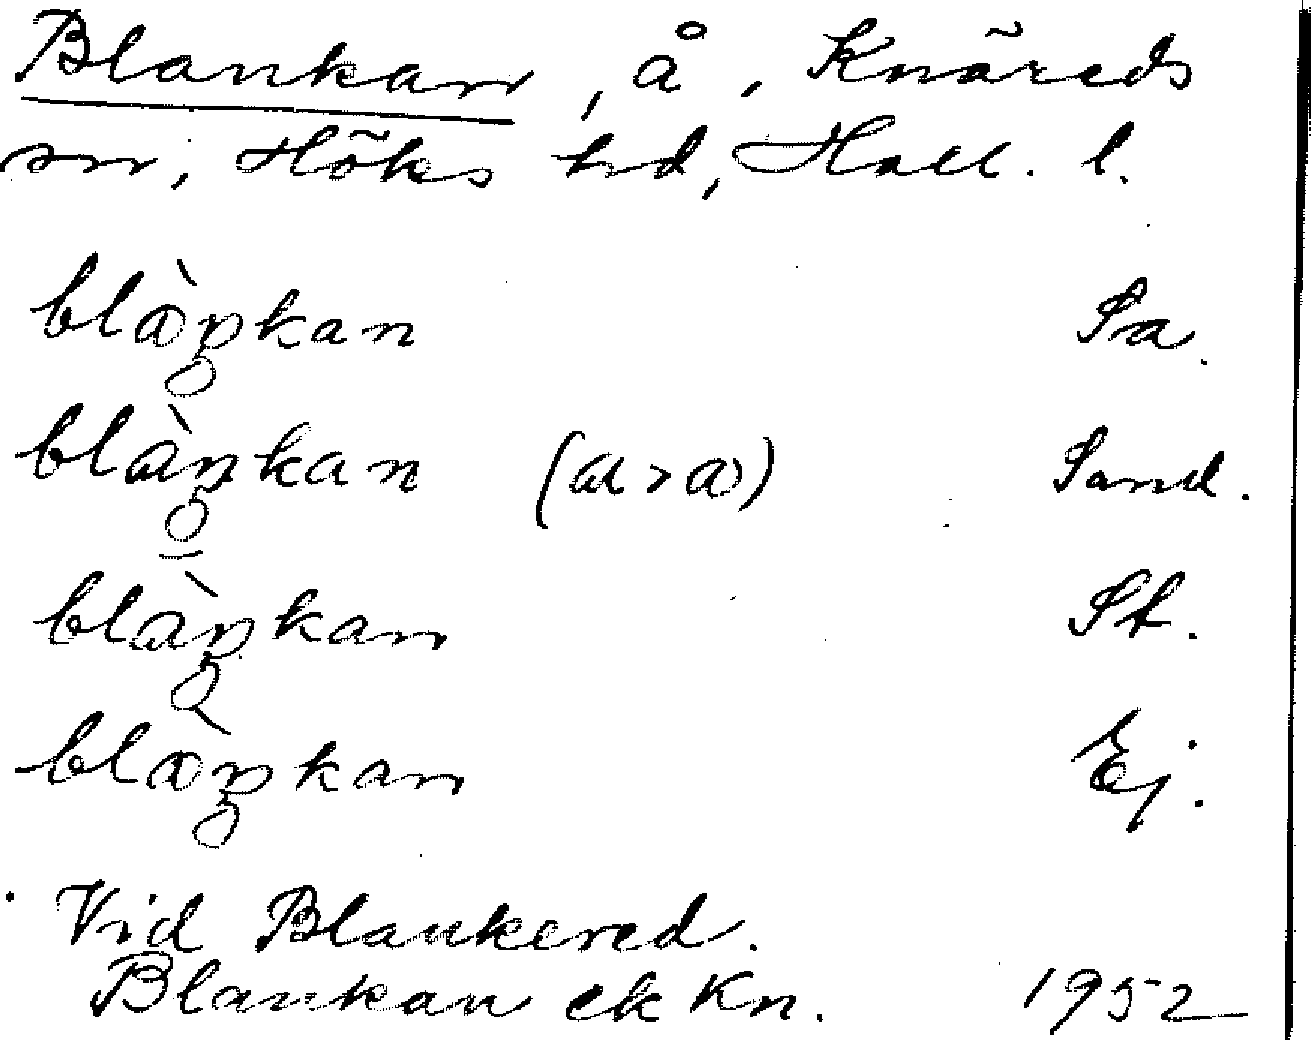 Blankan, å, Knäreds
sn, Höks hd, Hall. l.
blàŋkan Sa.
blàŋkan (a > a) Sand.
blàŋkan St.
blàŋkan Ej.
Vid Blankered.
Blankan ek Kn. 1952